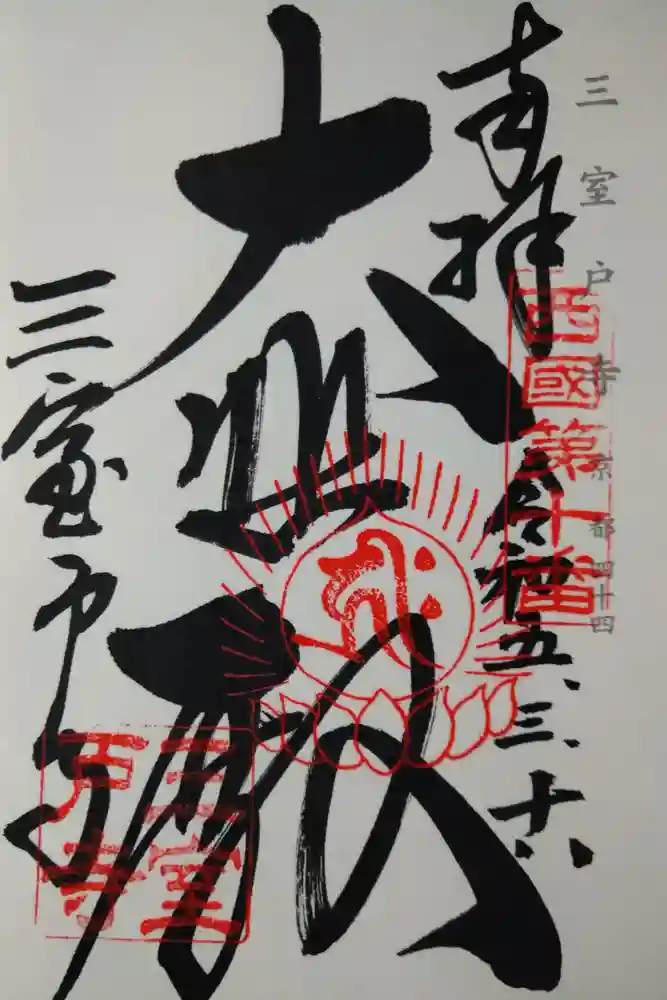 三室戸寺 京都四十四
西國第十番
奉拝 令和五、三、十六
大悲殿
三室戸寺
三室
戸寺